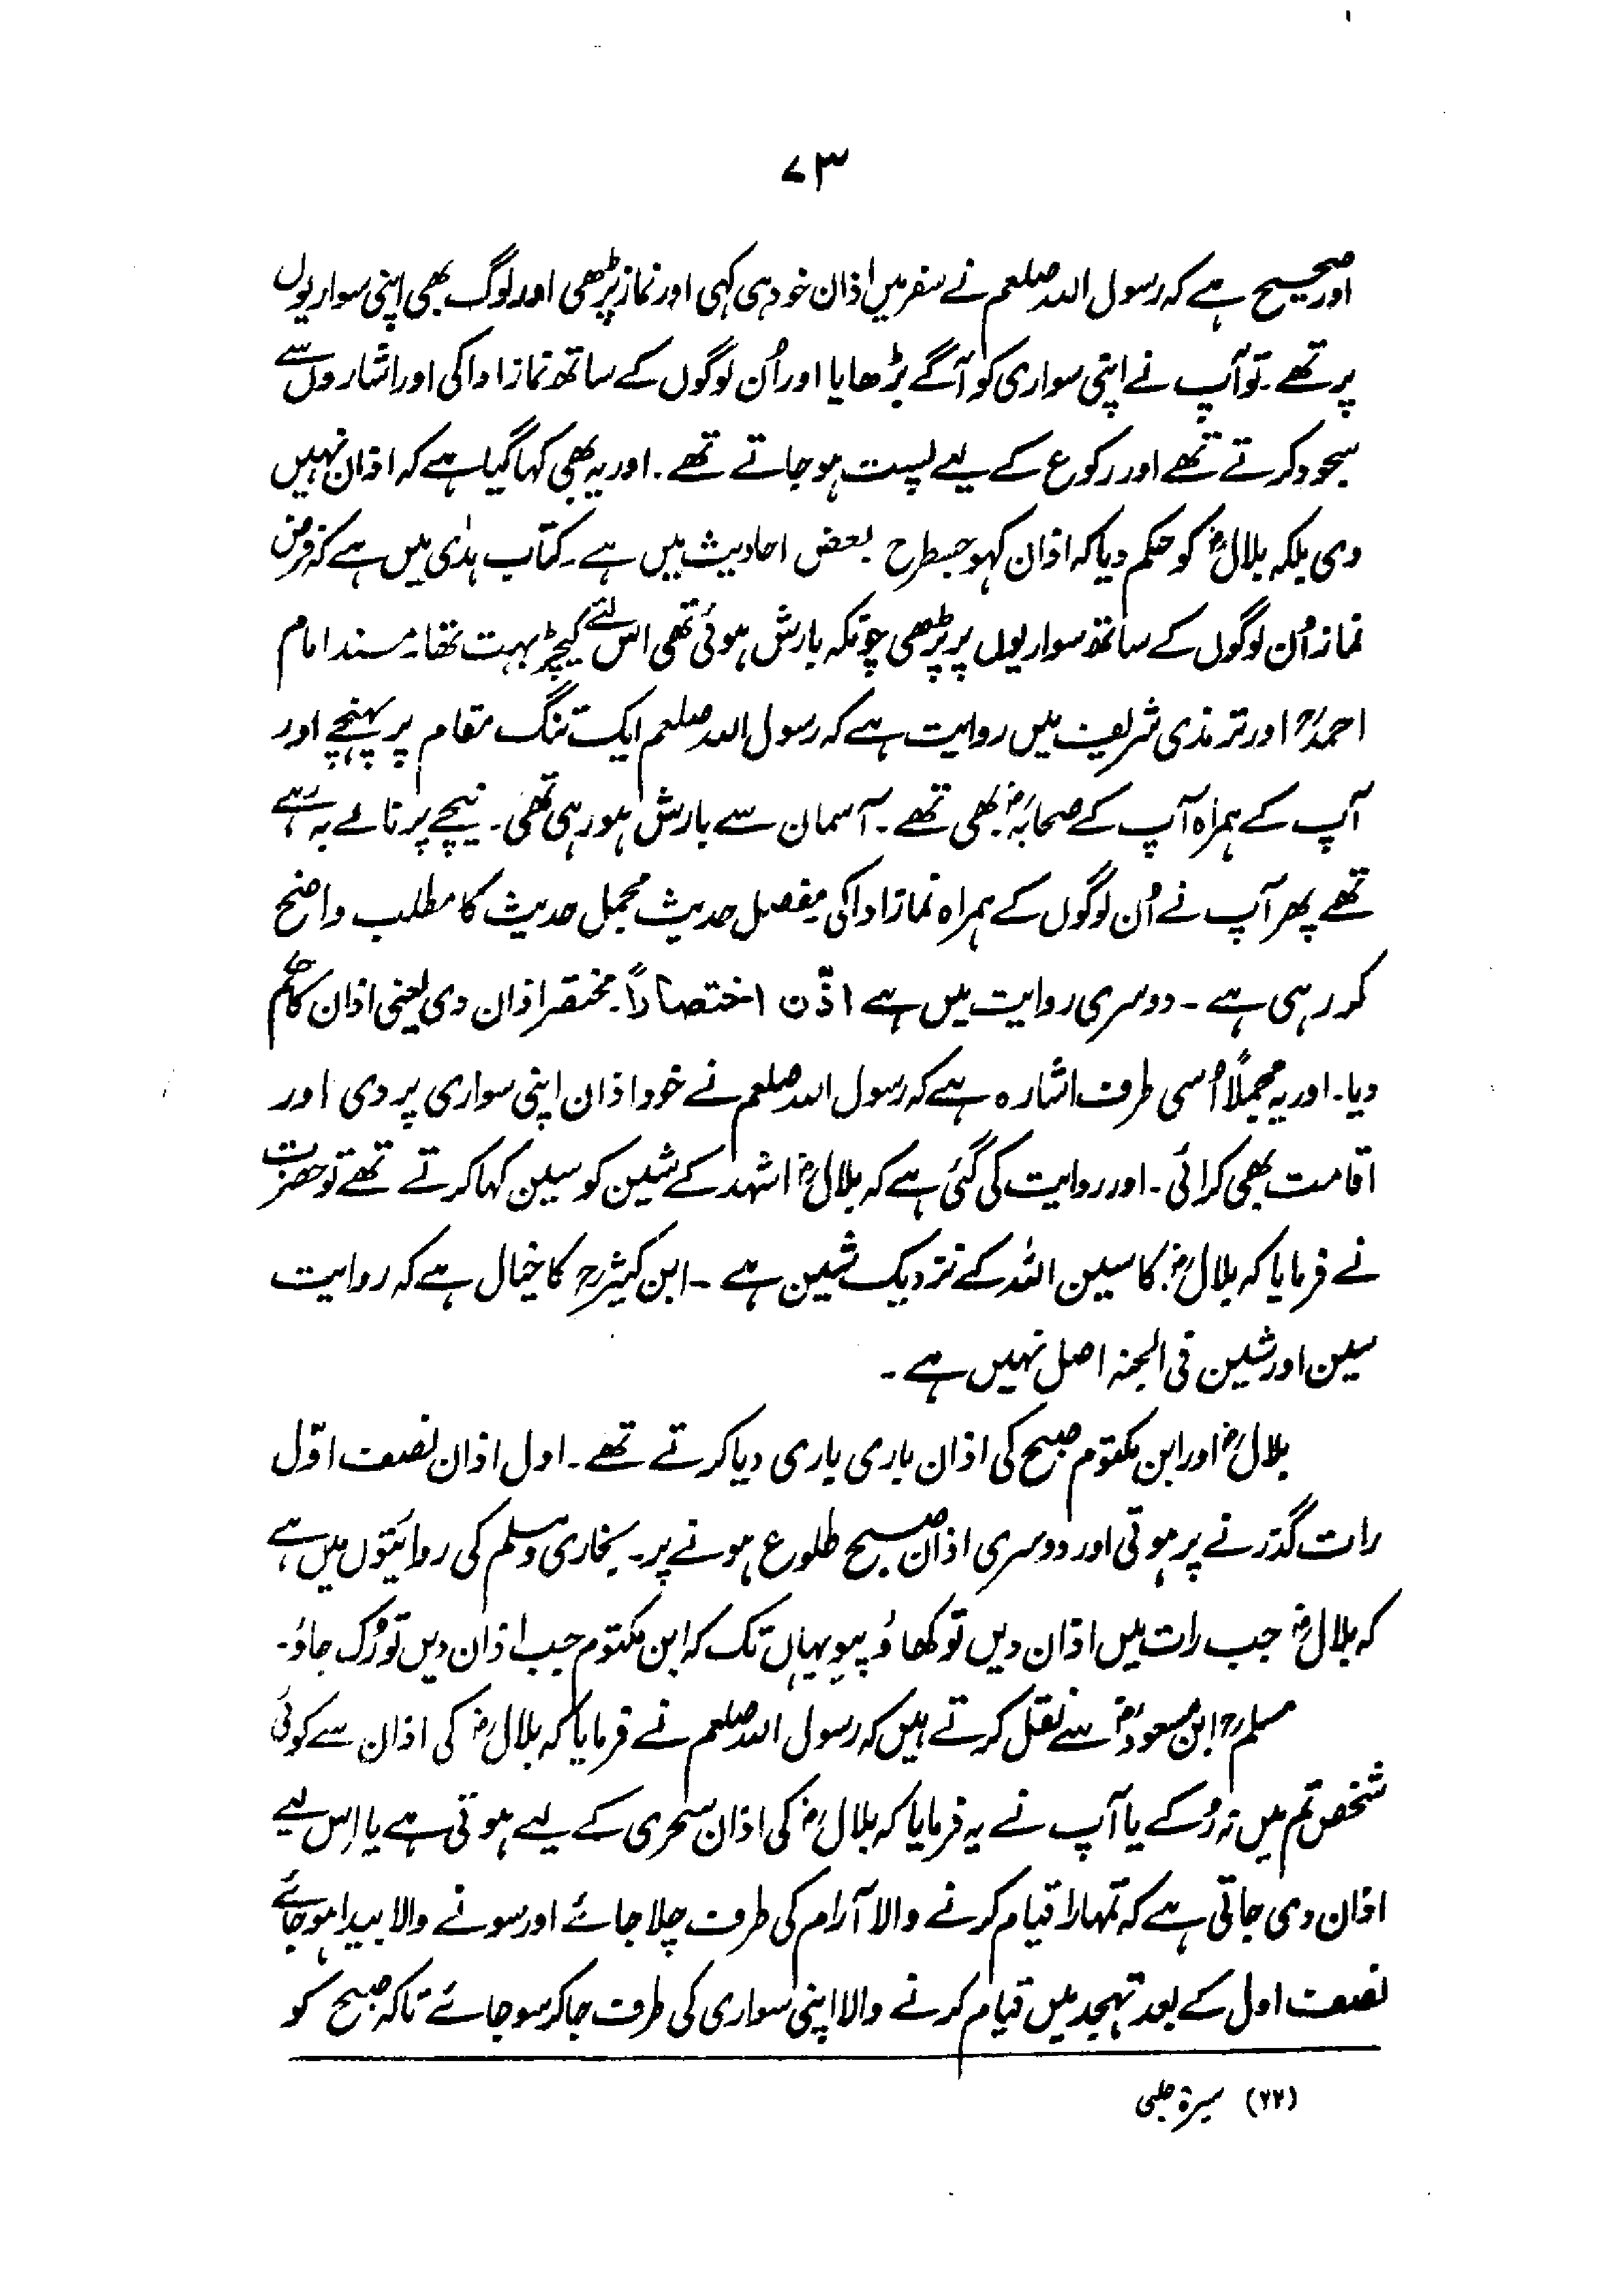 ۷۳
اور صحیح ہے کہ رسول اللہ صلعم نے سفر میں اذان خود ہی کہی اور نماز پڑھی اور لوگ بھی اپنی سواریوں
پر تھے۔ تو آپ نے اپنی سواری کو آگے بڑھایا اور اُن لوگوں کے ساتھ نماز ادا کی اور اشاروں سے
سجود کرتے تھے اور رکوع کے لیے پست ہو جاتے تھے۔ اور یہ بھی کہا گیا ہے کہ اذان نہیں
دی بلکہ بلالؓ کو حکم دیا کہ اذان کہو جسطرح بعض احادیث میں ہے۔ کتاب ہدٰی میں ہے کہ فرض
نماز اُن لوگوں کے ساتھ سواریوں پر پڑھی چونکہ بارش ہوئی تھی اس لئے کیچڑ بہت تھا۔ مسند امام
احمدؒ اور ترمذی شریف میں روایت ہے کہ رسول اللہ صلعم ایک تنگ مقام پر پہنچے اور
آپ کے ہمراہ آپ کے صحابہؓ بھی تھے۔ آسمان سے بارش ہو رہی تھی۔ نیچے پرنالے بہ رہے
تھے پھر آپ نے اُن لوگوں کے ہمراہ نماز ادا کی مفصل حدیث مجمل حدیث کا مطلب واضح
کر رہی ہے۔ دوسری روایت میں ہے اذّن اختصاراً۔ مختصر اذان دی یعنی اذان کا حکم
دیا۔ اور یہ مجملًا اُسی طرف اشارہ ہے کہ رسول اللہ صلعم نے خود اذان اپنی سواری پر دی اور
اقامت بھی کرائی۔ اور روایت کی گئی ہے کہ بلالؓ اشہد کے شین کو سین کہا کرتے تھے تو حضرت
نے فرمایا کہ بلالؓ کا سین اللہ کے نزدیک شین ہے۔ ابن کثیرؒ کا خیال ہے کہ روایت
سین اور شین فی الجنہ اصل نہیں ہے۔
بلالؓ اور ابن مکتوم صبح کی اذان باری باری دیا کرتے تھے۔ اول اذان نصف اوّل
رات گذرنے پر ہوتی اور دوسری اذان صبح طلوع ہونے پر۔ بخاری و مسلم کی روائیتوں میں ہے
کہ بلالؓ جب رات میں اذان دیں تو کھاؤ پیو یہاں تک کہ ابن مکتوم جب اذان دیں تو رُک جاؤ۔
مسلمؒ ابن مسعودؓ سے نقل کرتے ہیں کہ رسول اللہ صلعم نے فرمایا کہ بلالؓ کی اذان سے کوئی
شخص تم میں نہ رُکے یا آپ نے یہ فرمایا کہ بلالؓ کی اذان سحری کے لیے ہوتی ہے یا اِس لیے
اذان دی جاتی ہے کہ تمہارا قیام کرنے والا آرام کی طرف چلا جائے اور سونے والا بیدار ہو جائے
نصف اول کے بعد تہجد میں قیام کرنے والا اپنی سواری کی طرف جا کر سو جائے تاکہ صبح کو
(۲۲) سیرۃ حلبی